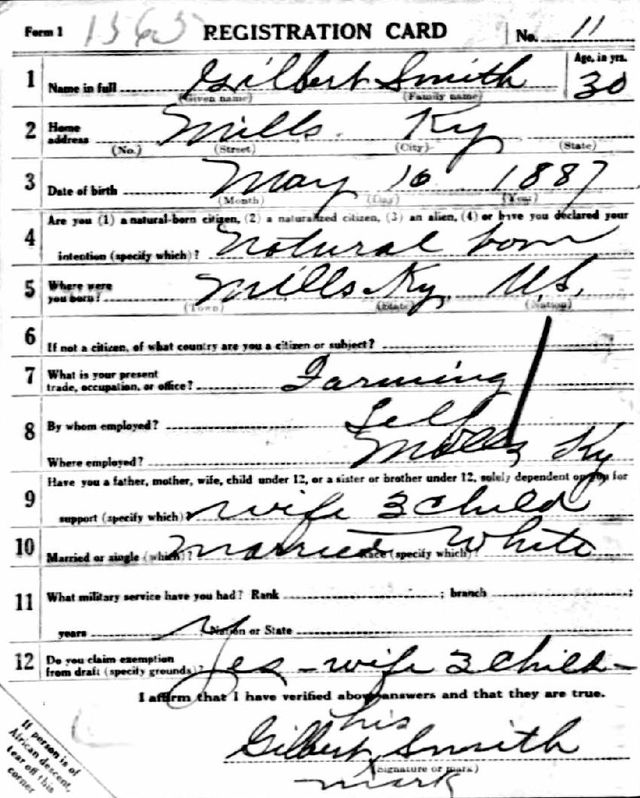 Form 1 1365 REGISTRATION CARD No. 11
1 Name in full Gilbert Smith Age, in yrs. 30
(Given name) (Family name)
2 Home address Mills. Ky
(No.) (Street) (City) (State)
3 Date of birth May 16 1887
(Month) (Day) (Year)
4 Are you (1) a natural-born citizen, (2) a naturalized citizen, (3) an alien, (4) or have you declared your
intention (specify which)? Natural born
5 Where were you born? Mills Ky. U.S.
(Town) (State) (Nation)
6 If not a citizen, of what country are you a citizen or subject?
7 What is your present trade, occupation, or office? Farming
8 By whom employed? Self
Where employed? Mills Ky
9 Have you a father, mother, wife, child under 12, or a sister or brother under 12, solely dependent on you for
support (specify which)? wife 3 child
10 Married or single (which)? Married Race (specify which)? White
11 What military service have you had? Rank ; branch ;
years Nation or State
12 Do you claim exemption from draft (specify grounds)? Yes - wife 3 child -
I affirm that I have verified above answers and that they are true.
his
Gilbert Smith
(Signature or mark)
mark
If person is of
African descent,
tear off this
corner.